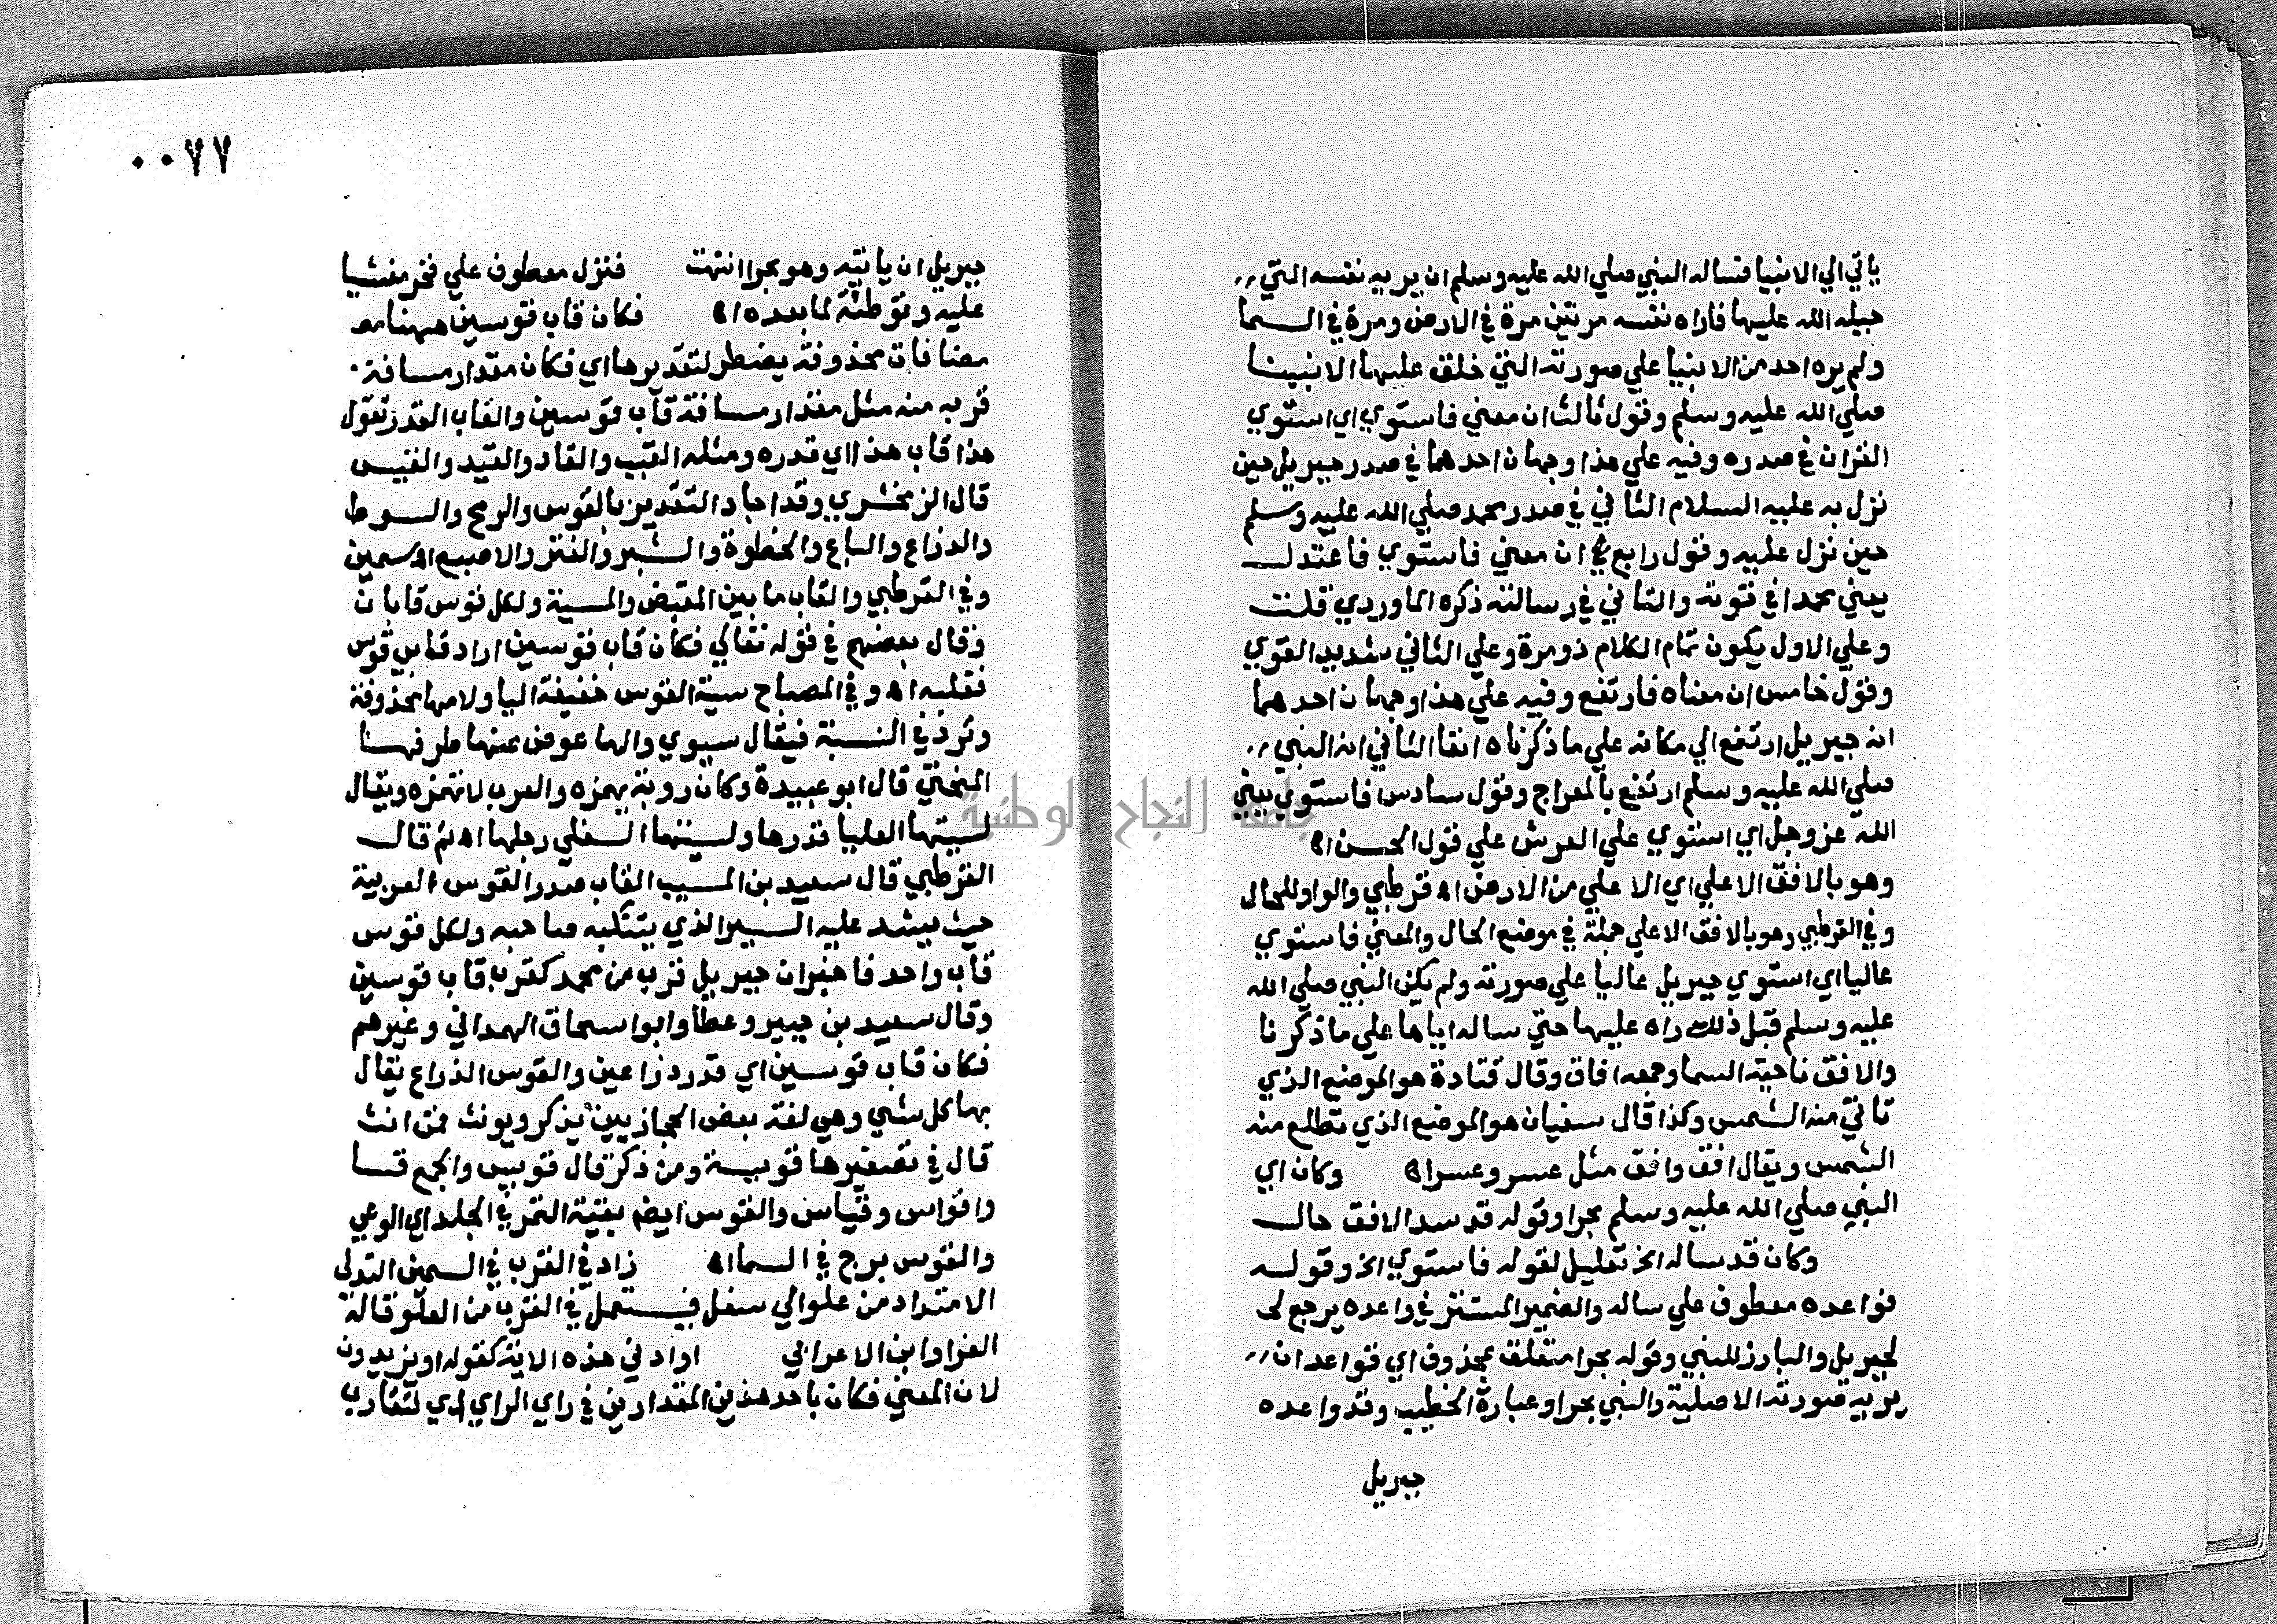 ياتي الي الانبيا فساله النبي صلي الله عليه وسلم ان يريه نفسه التي
جبله الله عليها فاراه نفسه مرتين مرة في الارض ومرة في السما
ولم يره احد من الانبيا علي صورته التي خلق عليها الا نبينا
صلي الله عليه وسلم وقول ثالث ان معني فاستوي اي استوي
القران في صدره وفيه علي هذا وجهان احدهما في صدر جبريل حين
نزل به عليه السلام الثاني في صدر محمد صلي الله عليه وسلم
حين نزل عليه وقول رابع ان معني فاستوي فاعتدل
يعني محمدا في قوته والثاني في رسالته ذكره الماوردي قلت
وعلي الاول يكون تمام الكلام ذو مرة وعلي الثاني شديد القوي
وقول خامس ان معناه فارتفع وفيه علي هذا وجهان احدهما
انه جبريل ارتفع الي مكانه علي ما ذكرناه انفا الثاني انه النبي
صلي الله عليه وسلم ارتفع بالمعراج وقول سادس فاستوي يعني
الله عز وجل اي استوي علي العرش علي قول الحسن اه
وهو بالافق الاعلي اي الاعلي من الارض اه قرطبي والواو للحال
وفي القرطبي وهو بالافق الاعلي جملة في موضع الحال والمعني فاستوي
عاليا اي استوي جبريل عاليا علي صورته ولم يكن النبي صلي الله
عليه وسلم قبل ذلك راه عليها حتي ساله اياها علي ما ذكرنا
والافق ناحية السما وجمعه افاق وقال قتادة هو الموضع الذي
تاتي منه الشمس وكذا قال سفيان هو الموضع الذي تطلع منه
الشمس ويقال افق وافق مثل عسر وعسر اه وكان اي
النبي صلي الله عليه وسلم بحرا وقوله قد سد الافق حال
وكان قد ساله الخ تعليل لقوله فاستوي الخ وقوله
فواعده معطوف علي ساله والضمير المستتر في واعده يرجع لي
لجبريل والبارز للنبي وقوله بحرا متعلق بمحذوف اي فواعد ان
يريه صورته الاصلية والنبي بحرا وعبارة الخطيب وقد واعده
جبريل
٠٠٧٧
جبريل ان ياتيه وهو بحرا انتهت فنزل معطوف علي فخر مغشيا
عليه وتوطئة لما بعده اه فكان قاب قوسين ههنا
مضافات محذوفة يضطر لتقديرها اي فكان مقدار مسافة
قربه منه مثل مقدار مسافة قاب قوسين والقاب القدر تقول
هذا قاب هذا اي قدره ومثله القيب والقاد والقيد والقيس
قال الزمخشري وقد جا التقدير بالقوس والرمح والسوط
والذراع والباع والخطوة والشبر والفتر والاصبع اه سمين
وفي القرطبي والقاب ما بين المقبض والسية ولكل قوس قابان
وقال بعضهم في قوله تعالي فكان قاب قوسين اراد قابي قوس
فقلبه اه وفي المصباح سية القوس خفيفة اليا ولامها محذوفة
وترد في النسبة فيقال سيوي والها عوض عنها طرفها
المنحني قال ابو عبيدة وكان روبة يهمزه والعرب لا تهمزه ويقال
لسيتها العليا يدها ولسيتها السفلي رجلها اه ثم قال
القرطبي قال سعيد بن المسيب القاب صدر القوس العربية
حيث يشد عليه السير الذي يتنكبه صاحبه ولكل قوس
قاب واحد فاخبر ان جبريل قرب من محمد كقرب قاب قوسين
وقال سعيد بن جبير وعطا وابو اسحاق الهمداني وغيرهم
فكان قاب قوسين اي قدر ذراعين والقوس الذراع يقال
بها كل شي وهي لغة بعض الحجازيين يذكر ويونث فمن انث
قال في تصغيرها قويسة ومن ذكر قال قويس والجمع قسا
واقواس وقياس والقوس ايضم بقية التمر في الجلد اي الوعي
والقوس برج في السما اه زاد في القرب في السمين التدلي
الامتداد من علو الي سفل فيستعمل في القرب من العلو قاله
الفرا وابن الاعرابي او ادني هذه الاية كقوله او يزيدون
لان المعني فكان باحد هذين المقدارين في راي الراي لتقارب
جامعة النجاح الوطنية